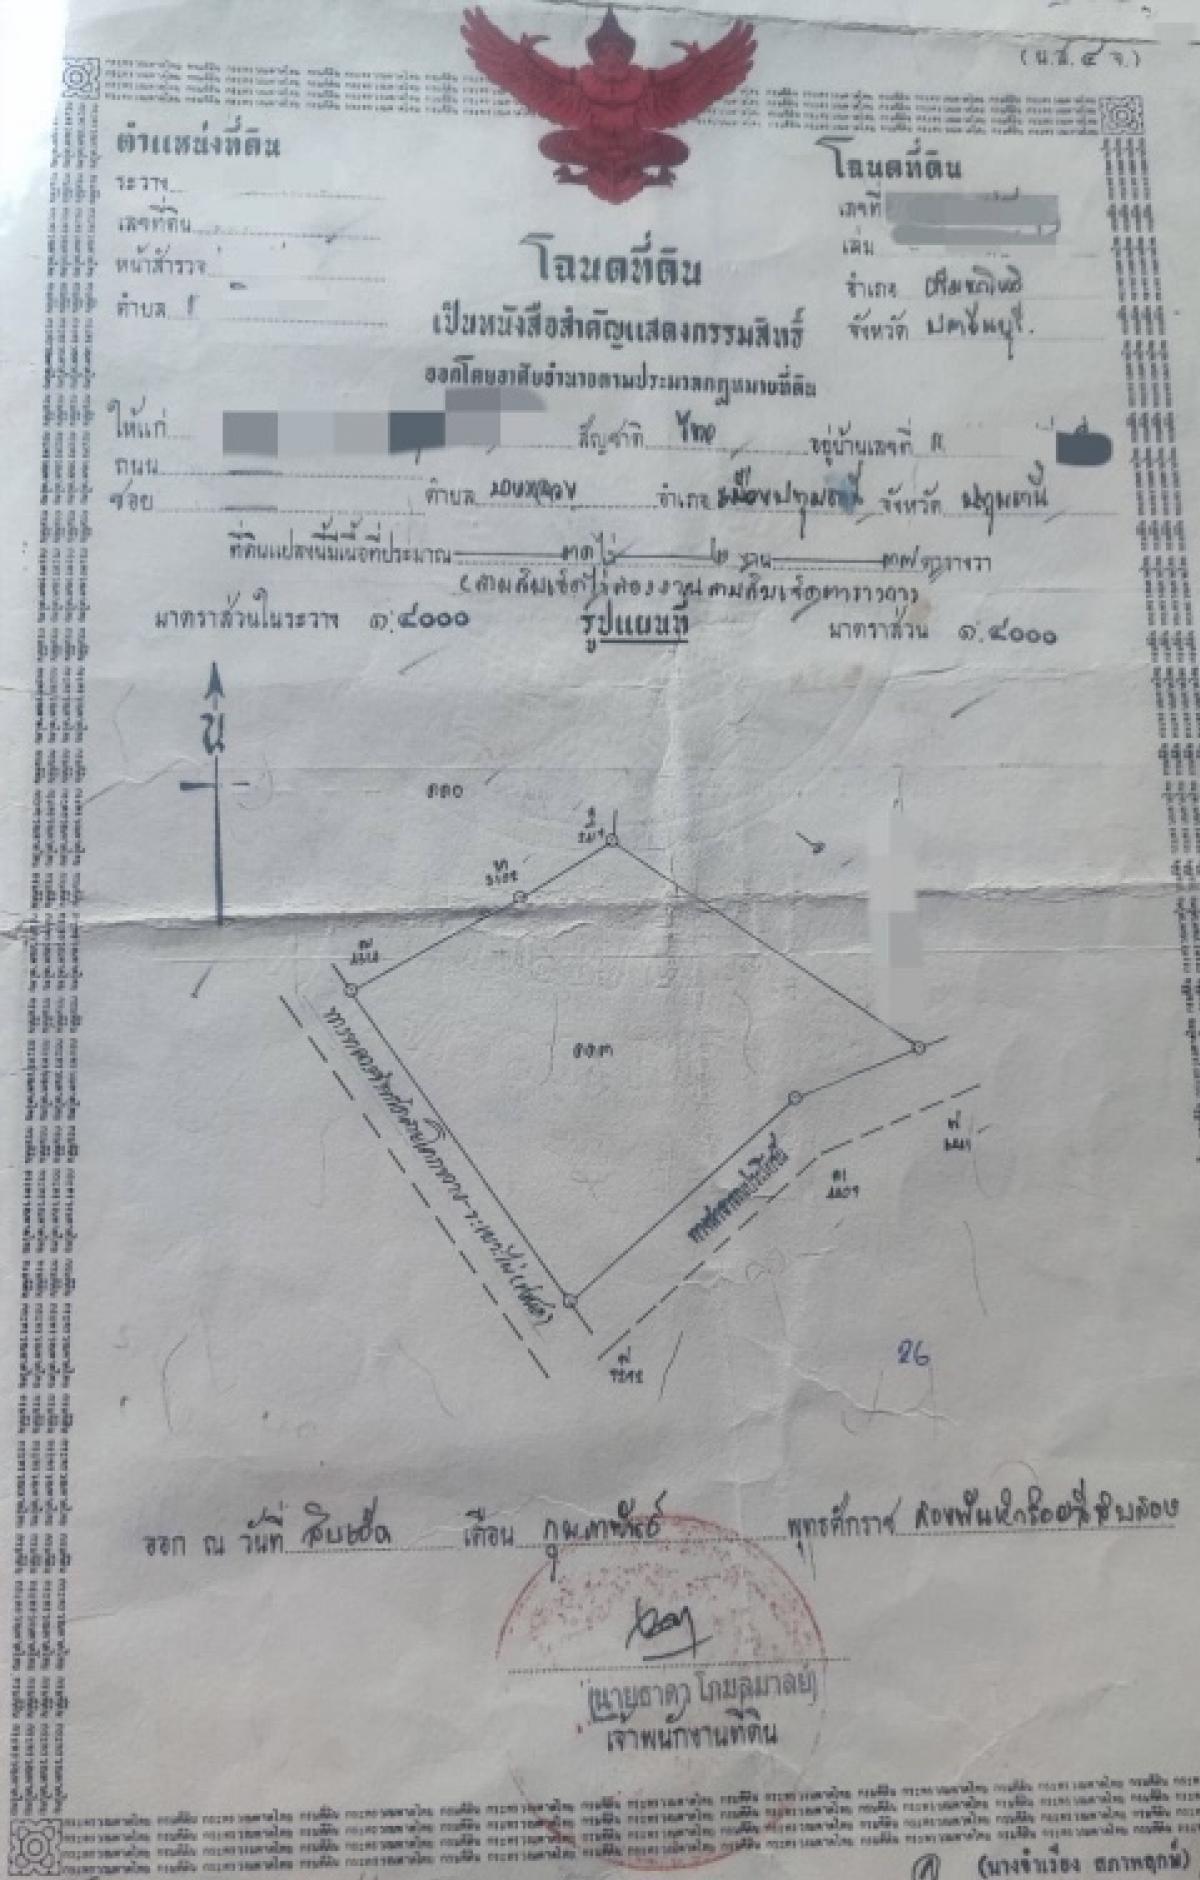 (น.ส.๔ จ.)
ตำแหน่งที่ดิน
ระวาง
เลขที่ดิน
หน้าสำรวจ
ตำบล
โฉนดที่ดิน
เลขที่
เล่ม
อำเภอ ศรีมหาโพธิ
จังหวัด ปราจีนบุรี.
โฉนดที่ดิน
เป็นหนังสือสำคัญแสดงกรรมสิทธิ์
ออกโดยอาศัยอำนาจตามประมวลกฎหมายที่ดิน
ให้แก่ สัญชาติ ไทย อยู่บ้านเลขที่
ถนน
ซอย ตำบล บางหลวง อำเภอ เมืองปทุมธานี จังหวัด ปทุมธานี
ที่ดินแปลงนี้มีเนื้อที่ประมาณ ไร่ ๒ งาน ๓๗ ตารางวา
(สามสิบเจ็ดไร่สองงานสามสิบเจ็ดตารางวา)
มาตราส่วนในระวาง ๑:๔๐๐๐ รูปแผนที่ มาตราส่วน ๑:๔๐๐๐
น
๑๑๐
๑๑๓
ทางสาธารณประโยชน์
26
ออก ณ วันที่ สิบเอ็ด เดือน กุมภาพันธ์ พุทธศักราช สองพันห้าร้อยสี่สิบสอง
(นายธาดา โกมลมาลย์)
เจ้าพนักงานที่ดิน
(นางจำเรียง สภาพฤกษ์)